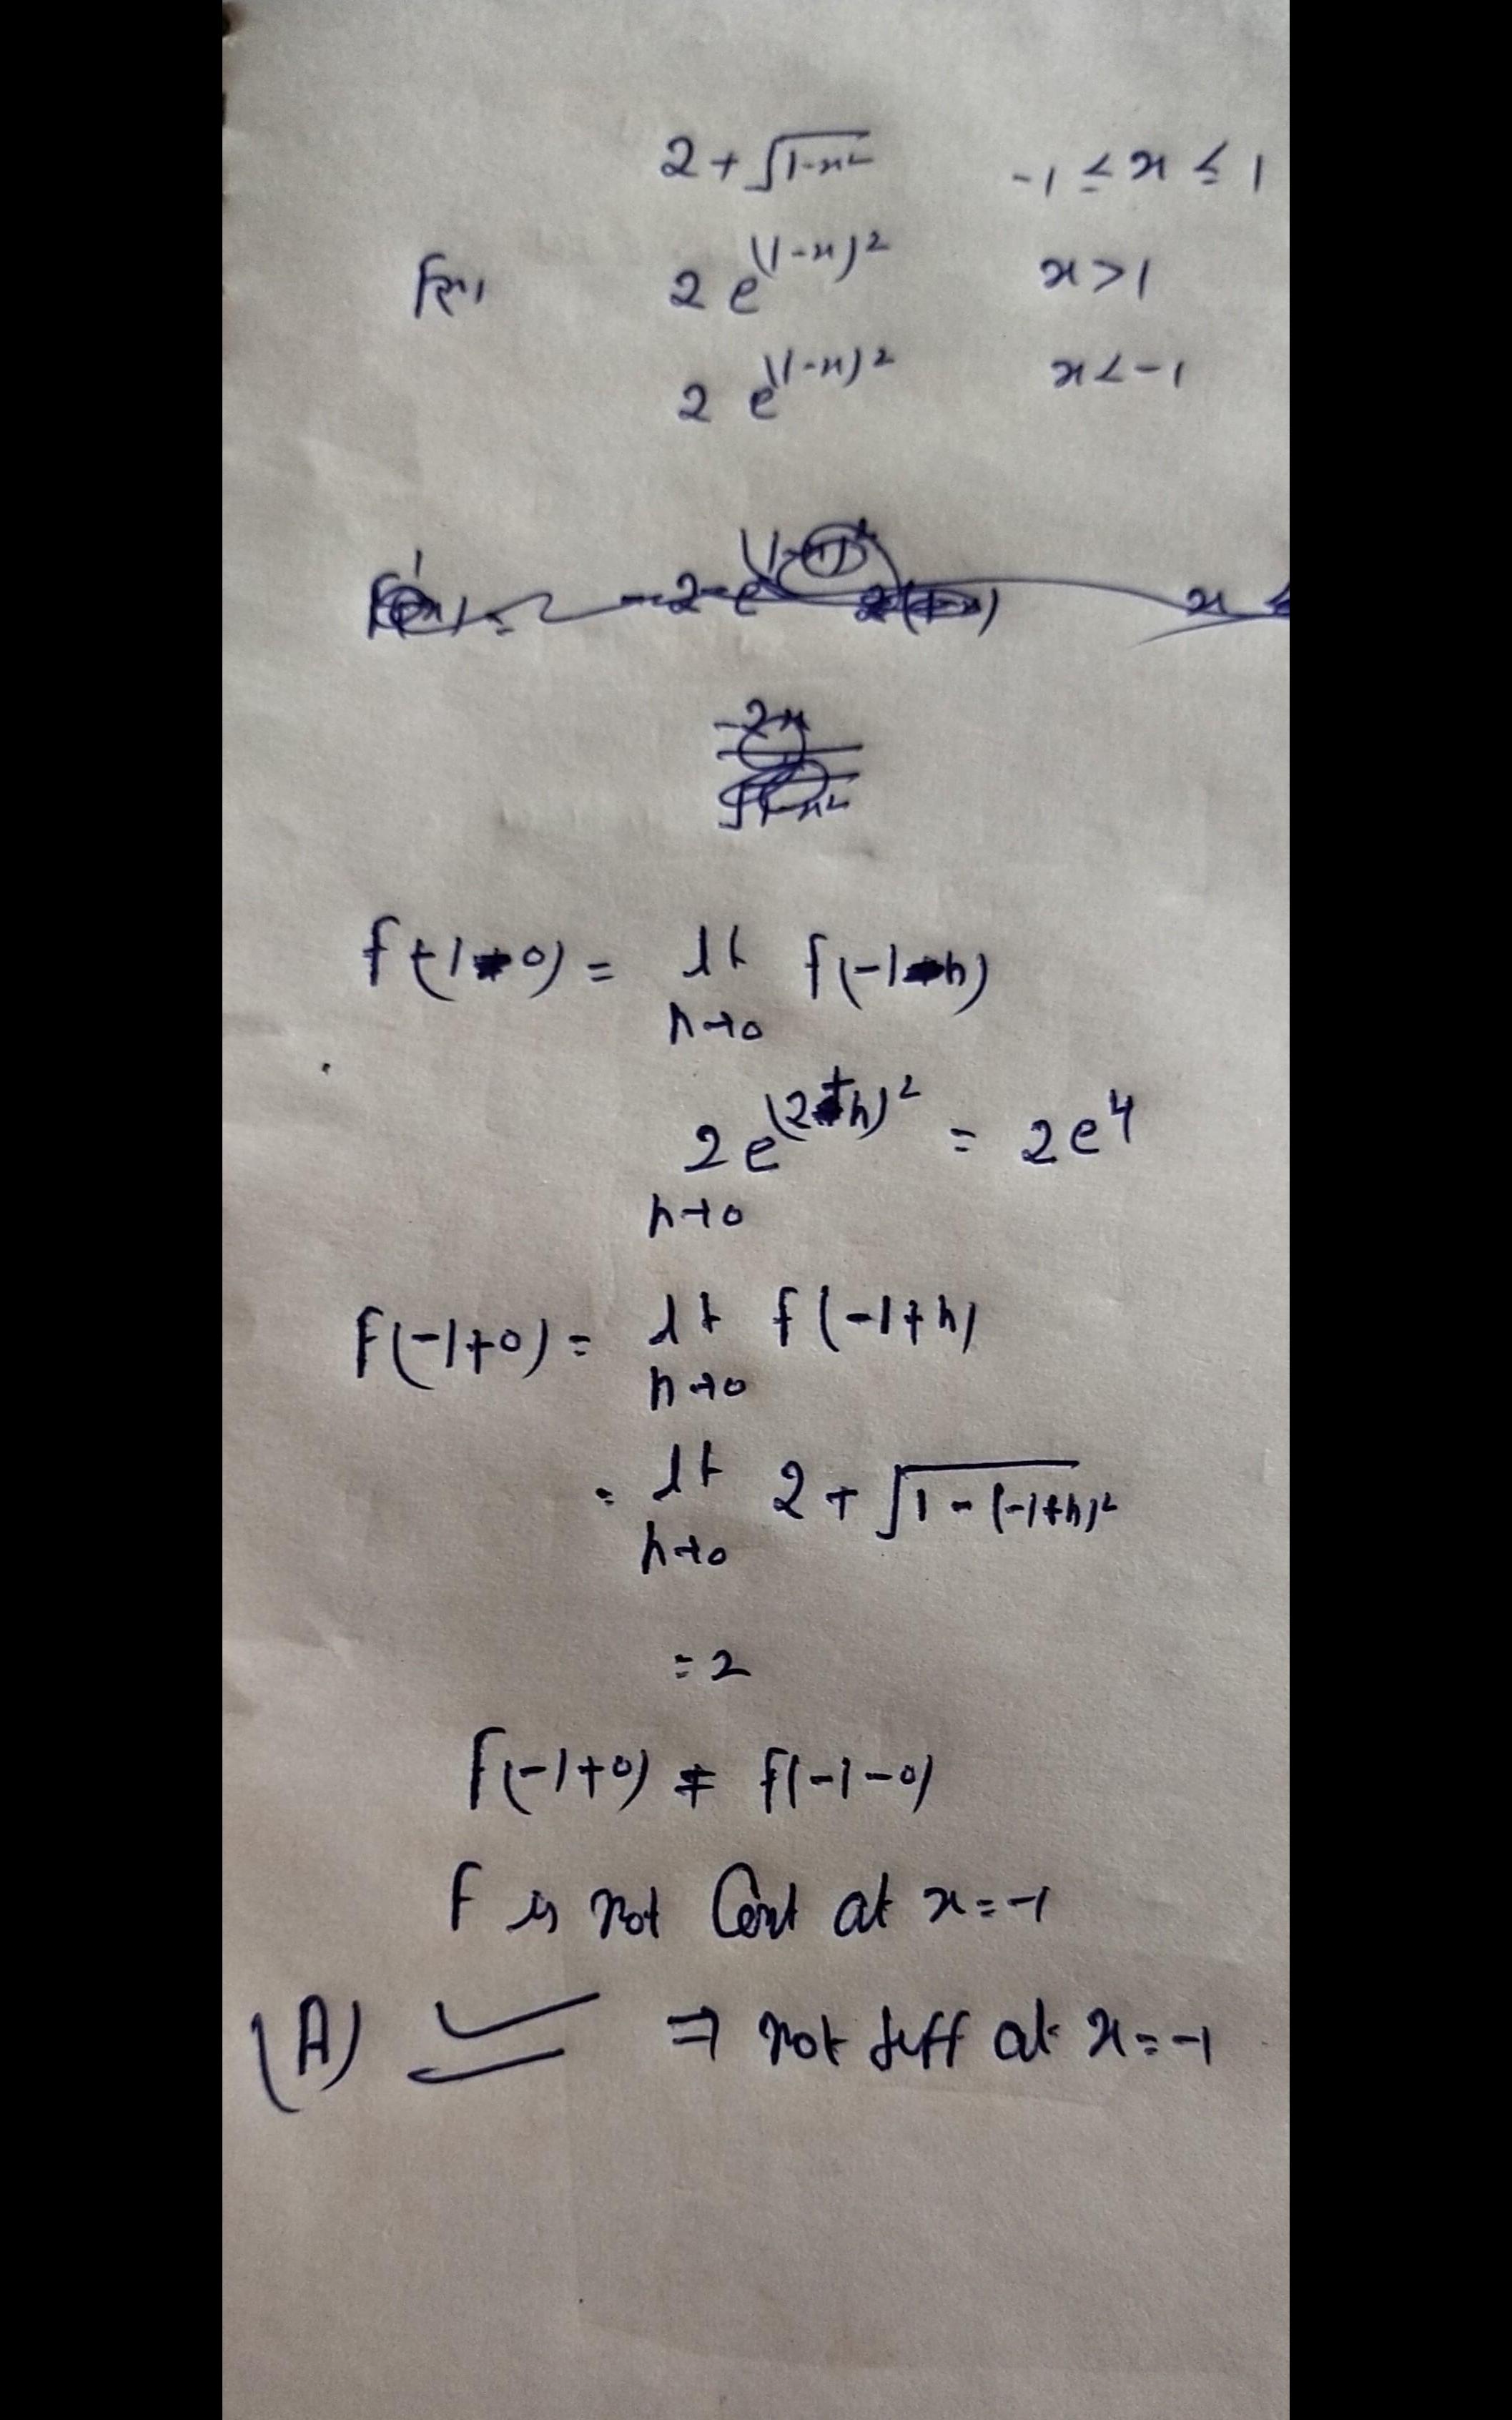 2 + √1-x² -1 ≤ x ≤ 1
f(x) 2 e^(1-x)² x > 1
2 e^(1-x)² x < -1
f(-1-0) = lt f(-1-h)
h→0
2 e^(2+h)² = 2e⁴
h→0
f(-1+0) = lt f(-1+h)
h→0
= lt 2 + √1-(-1+h)²
h→0
= 2
f(-1+0) ≠ f(-1-0)
f is not Cont at x = -1
(A) ⇒ not diff at x = -1